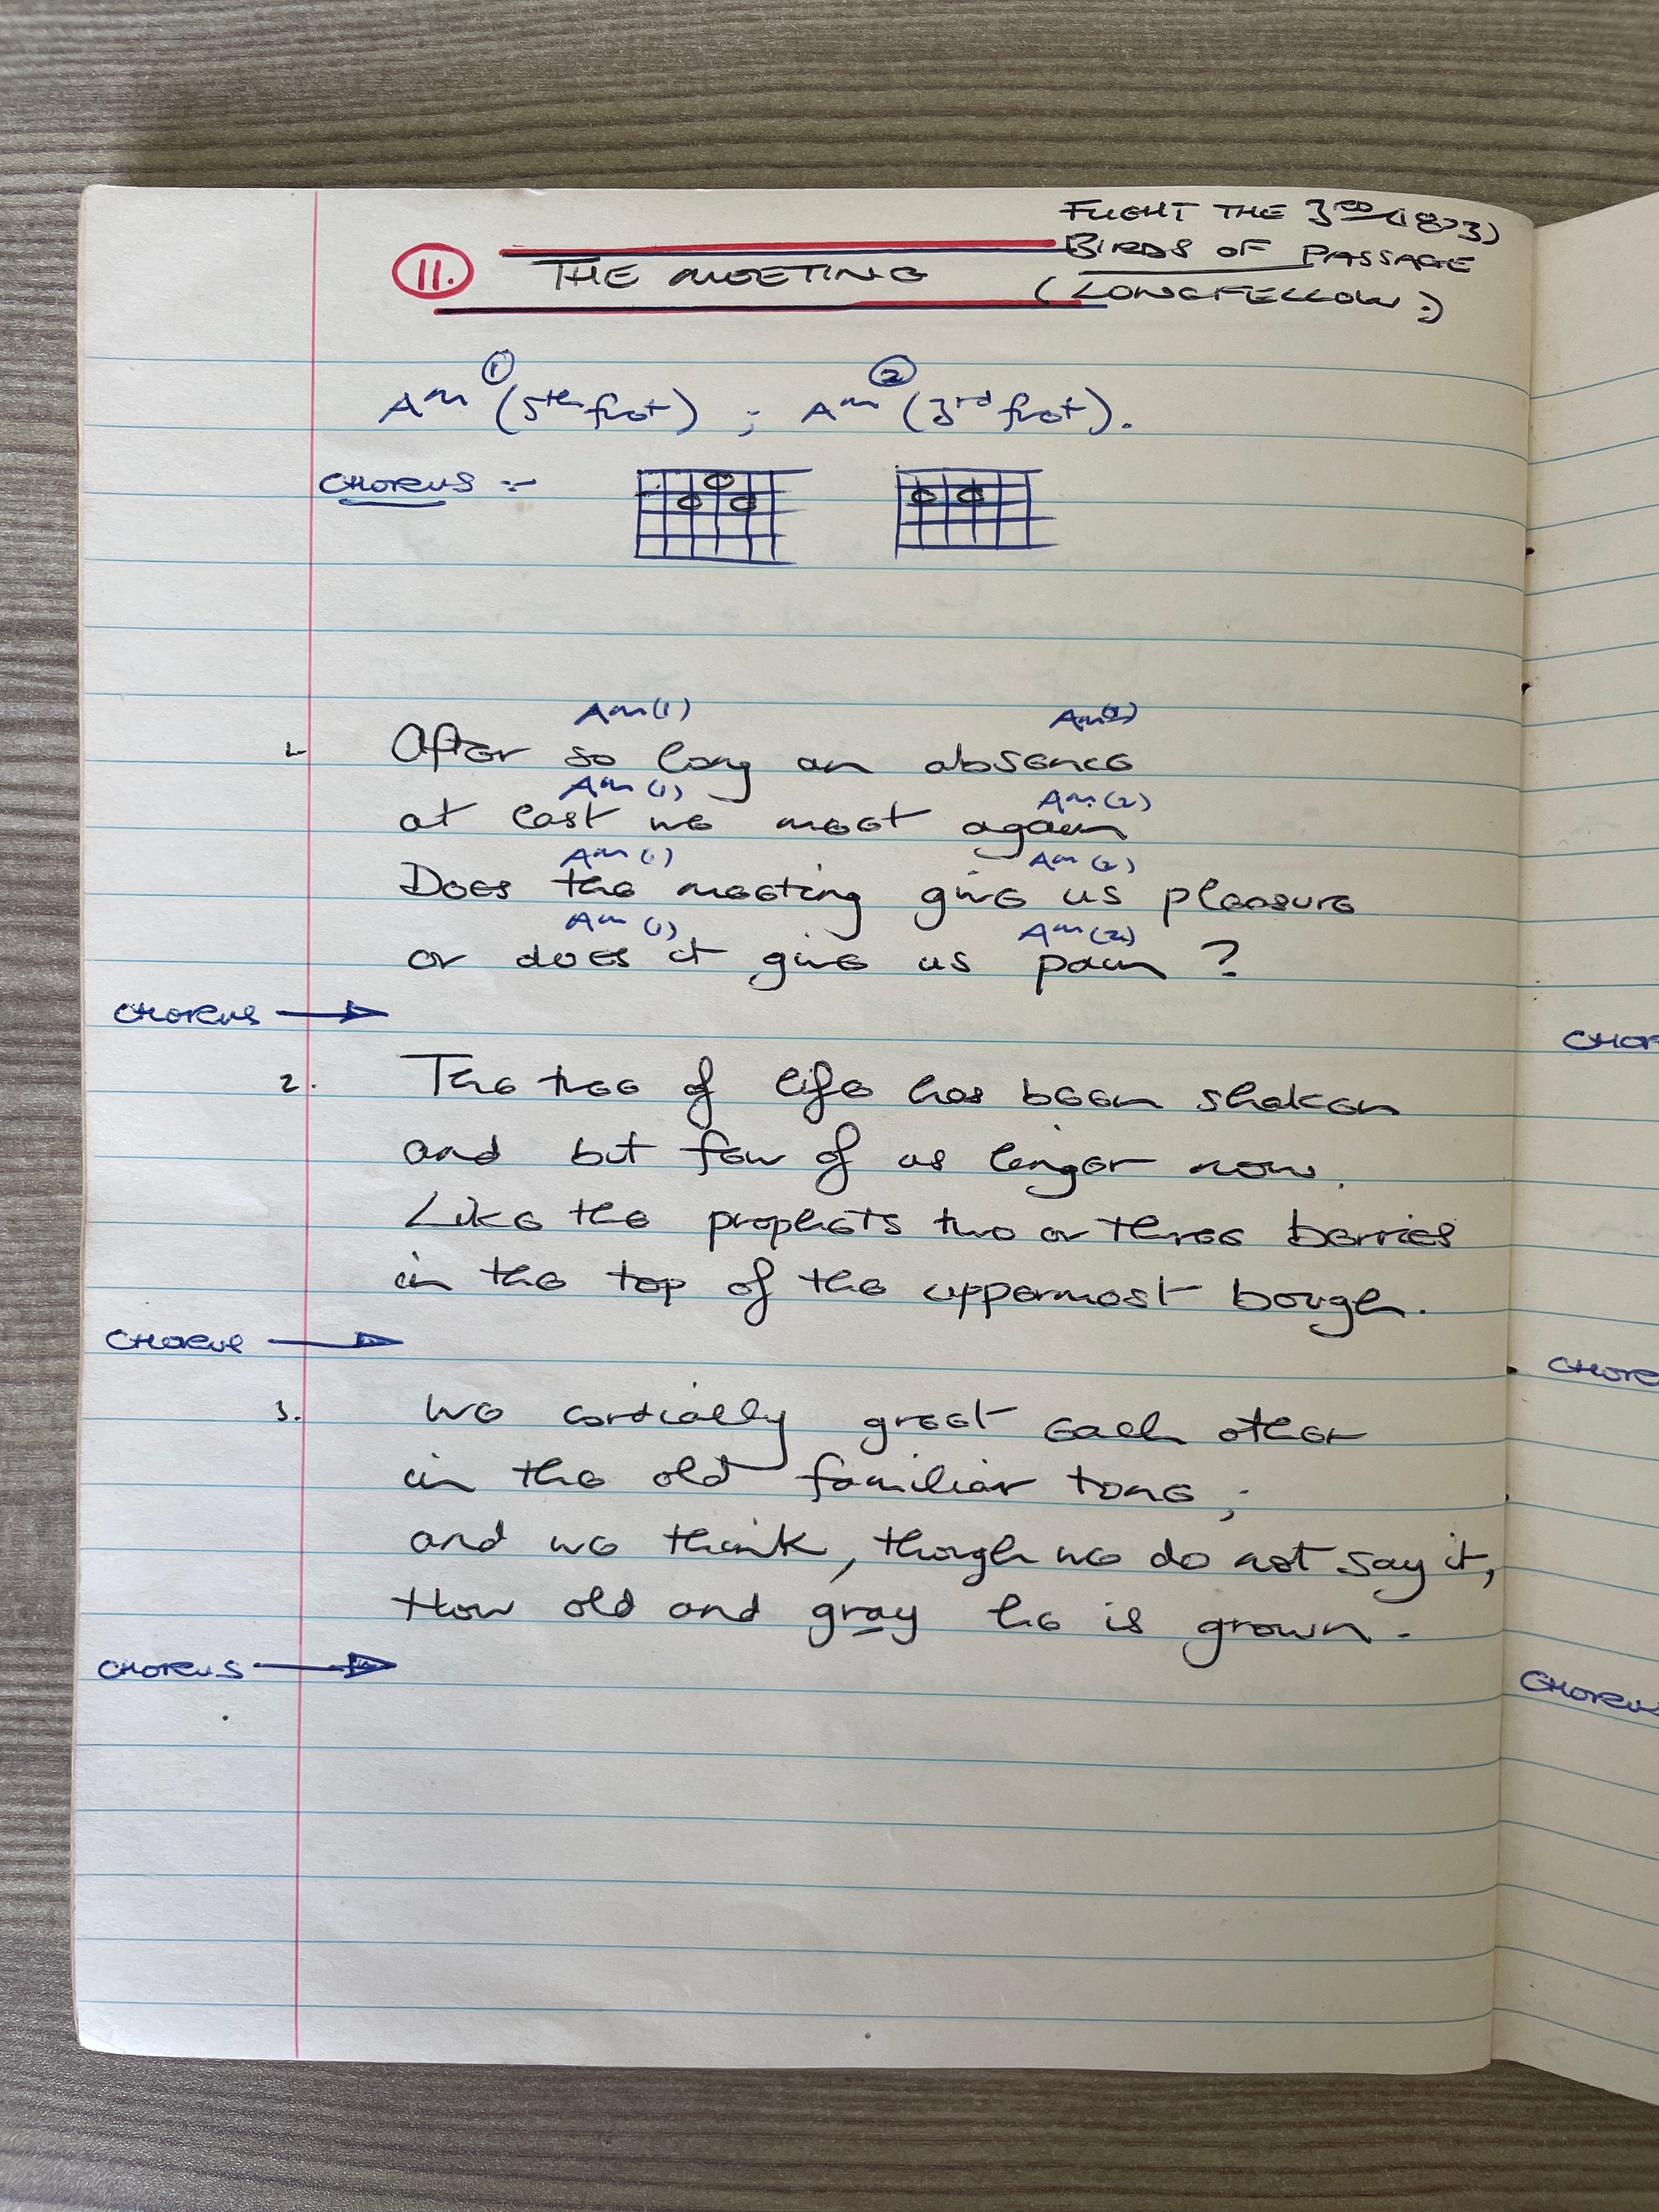 FLIGHT THE 3RD (1873)
BIRDS OF PASSAGE
(LONGFELLOW:)
11. THE MEETING
Am ① (5th fret) ; Am ② (3rd fret).
CHORUS :-
Am(1) Am(2)
1. After so long an absence
Am(1) Am(2)
at last we meet again
Am(1) Am(2)
Does the meeting give us pleasure
Am(1) Am(2)
or does it give us pain ?
CHORUS →
2. The tree of life has been shaken
and but few of us linger now.
Like the prophets two or three berries
in the top of the uppermost bough.
CHORUS →
3. We cordially greet each other
in the old familiar tone ;
and we think, though we do not say it,
How old and gray he is grown.
CHORUS →
CHOR
CHORU
CHORUS